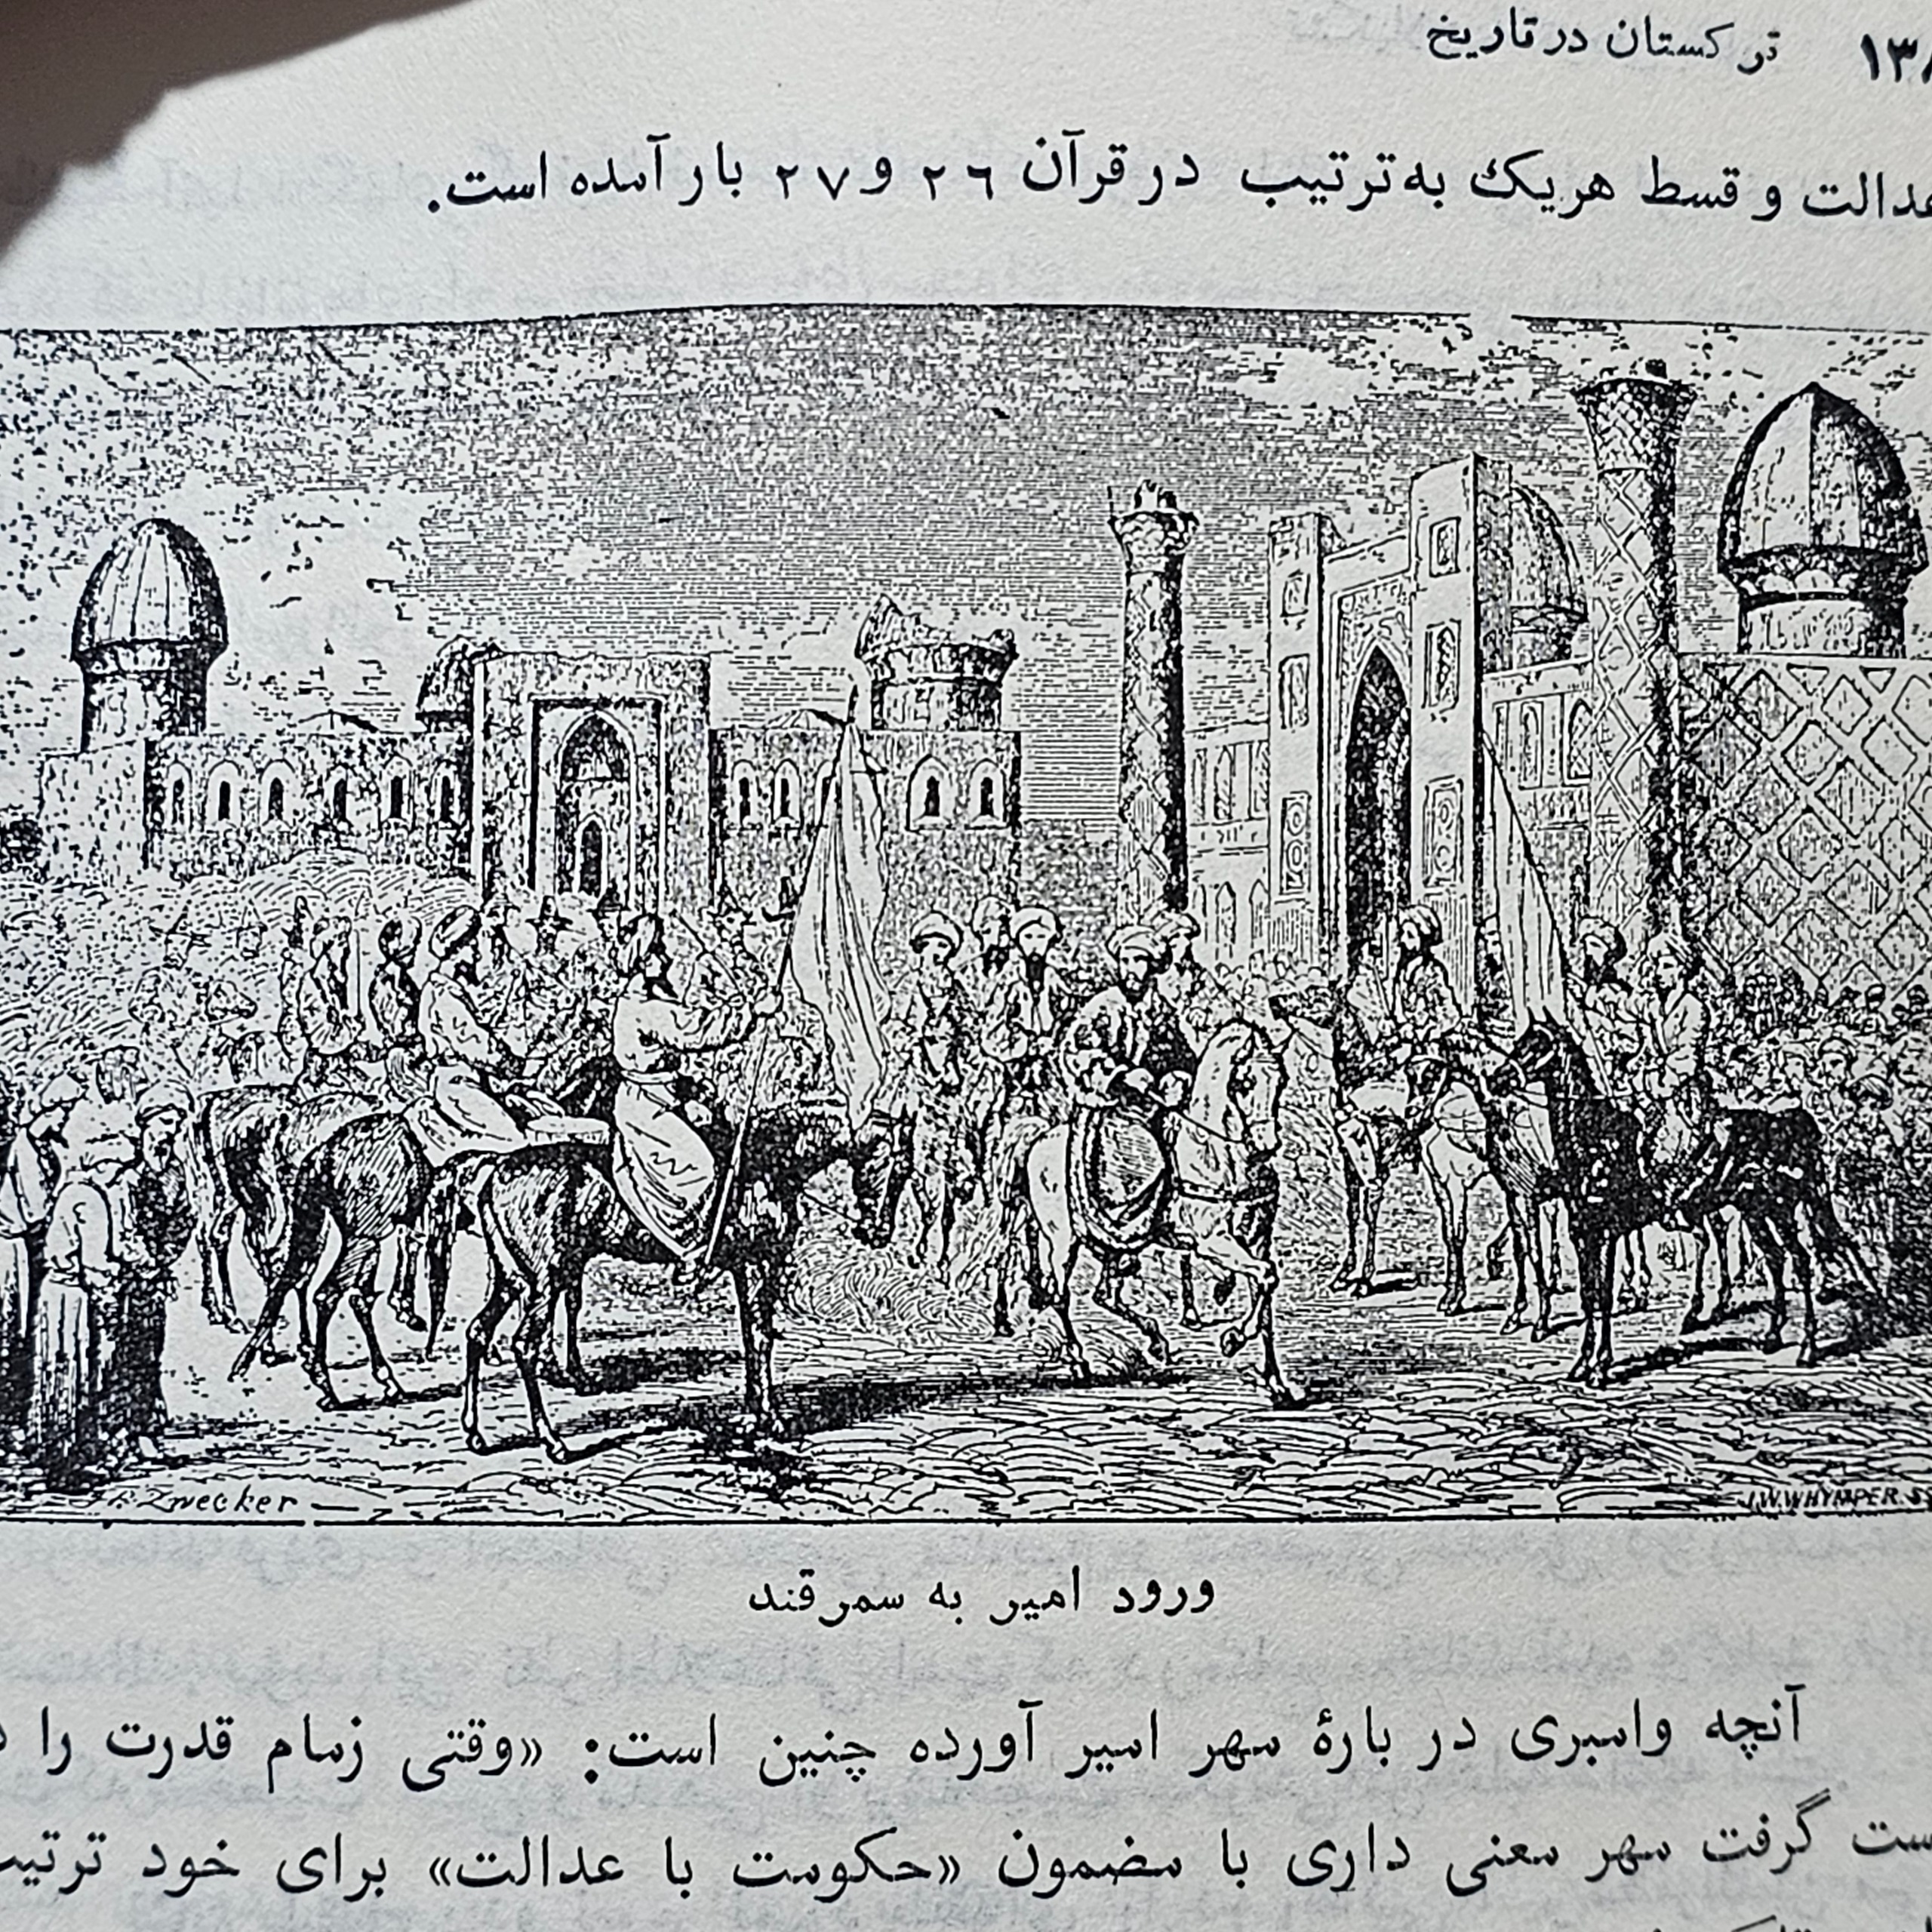 ترکستان در تاریخ
عدالت و قسط هریک به ترتیب در قرآن ۲۶ و ۲۷ بار آمده است.
Zwecker
J.W.WHYMPER.
ورود امیر به سمرقند
آنچه وامبری در بارهٔ مهر امیر آورده چنین است: «وقتی زمام قدرت را
گرفت مهر معنی داری با مضمون «حکومت با عدالت» برای خود